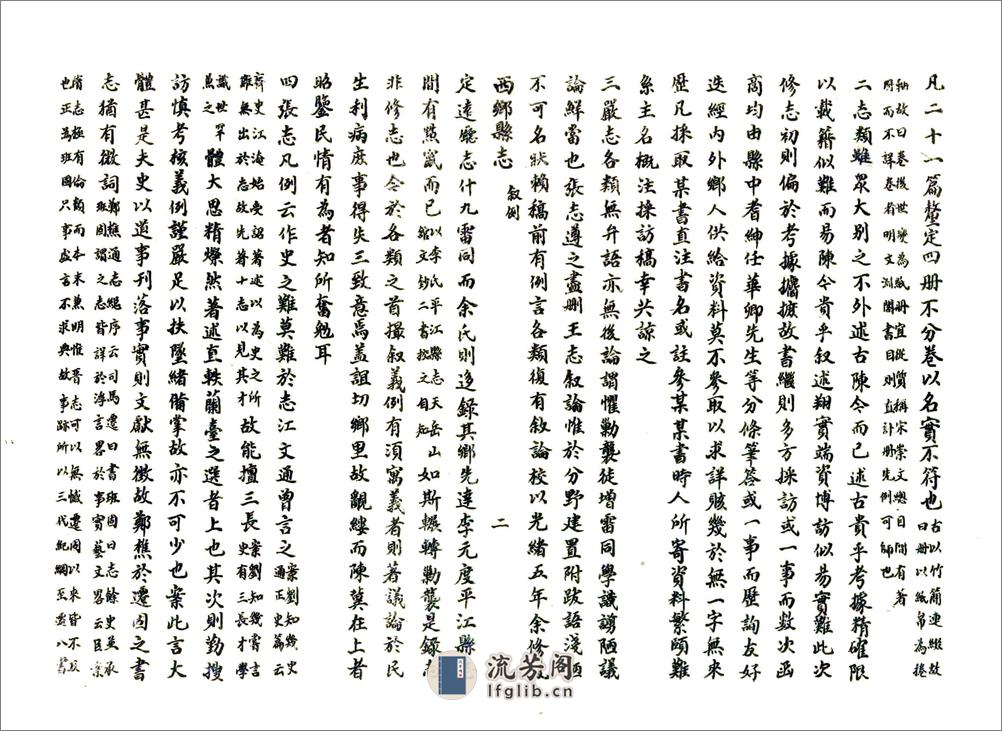 凡二十一篇釐定四冊不分卷以名實不符也古以竹簡連綴故曰冊以紙帛為捲
軸故曰卷後世變為紙冊宜從質稱宋崇文總目間有著
冊而不詳卷者明文淵閣書目則直計冊先例可師也
二志類雖眾大別之不外述古陳今而已述古貴乎考據精確限
以載籍似難而易陳今貴乎叙述翔實端資博訪似易實難此次
修志初則偏於考據攟摭故書繼則多方採訪或一事而數次函
商均由縣中耆紳任華卿先生等分條筆答或一事而歷詢友好
迭經內外鄉人供給資料莫不參取以求詳賅幾於無一字無來
歷凡採取某書直注書名或註參某某書時人所寄資料繁頤難
系主名概注採訪稿幸共諒之
三嚴志各類無弁語亦無後論謂懼勦襲徒增雷同學識謭陋議
論鮮當也張志遵之盡刪王志叙論惟於分野建置附跋語淺陋
不可名狀賴稿前有例言各類復有敘論校以光緒五年余修
西鄉縣志 叙例 二
定遠廳志什九雷同而余氏則迻錄其鄉先達李元度平江縣
間有點竄而已以李氏平江縣志天岳山館文鈔二書按文自知如斯輾轉勦襲是錄
非修志也今於各類之首撮叙義例有須寓義者則著議論於民
生利病庶事得失三致意焉蓋誼切鄉里故覼縷而陳冀在上者
昭鑒民情有為者知所奮勉耳
四張志凡例云作史之難莫難於志江文通曾言之案劉知幾史通正史篇云
齊史江淹始受詔著述以為史之所難無出於志故先著十志以見其才故能擅三長案劉知幾嘗言史有三長才學
識世罕兼之體大思精燦然著述直軼蘭臺之選者上也其次則勤搜
訪慎考核義例謹嚴足以扶墜緒備掌故亦不可少也案此言大
體甚是夫史以道事刊落事實則文獻無徵故鄭樵於遷固之書
志猶有微詞鄭樵通志總序云司馬遷曰書班固曰志餘史並承班固謂之志皆詳於浮言畧於事實藝文畧云臣案
隋志極有倫類而本末兼明惟晉志可以無憾遷固以來皆不及
也正為班固只事虛言不求典故事跡所以三代紀綱至遷八書
流芳阁
lfglib.cn